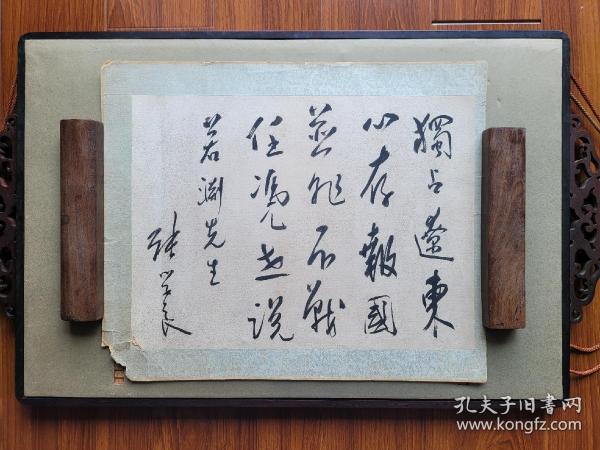 獨占遼東
心存報國
並非不戰
任憑世說
若淵先生
張學良
孔夫子旧书网
www.kongfz.com